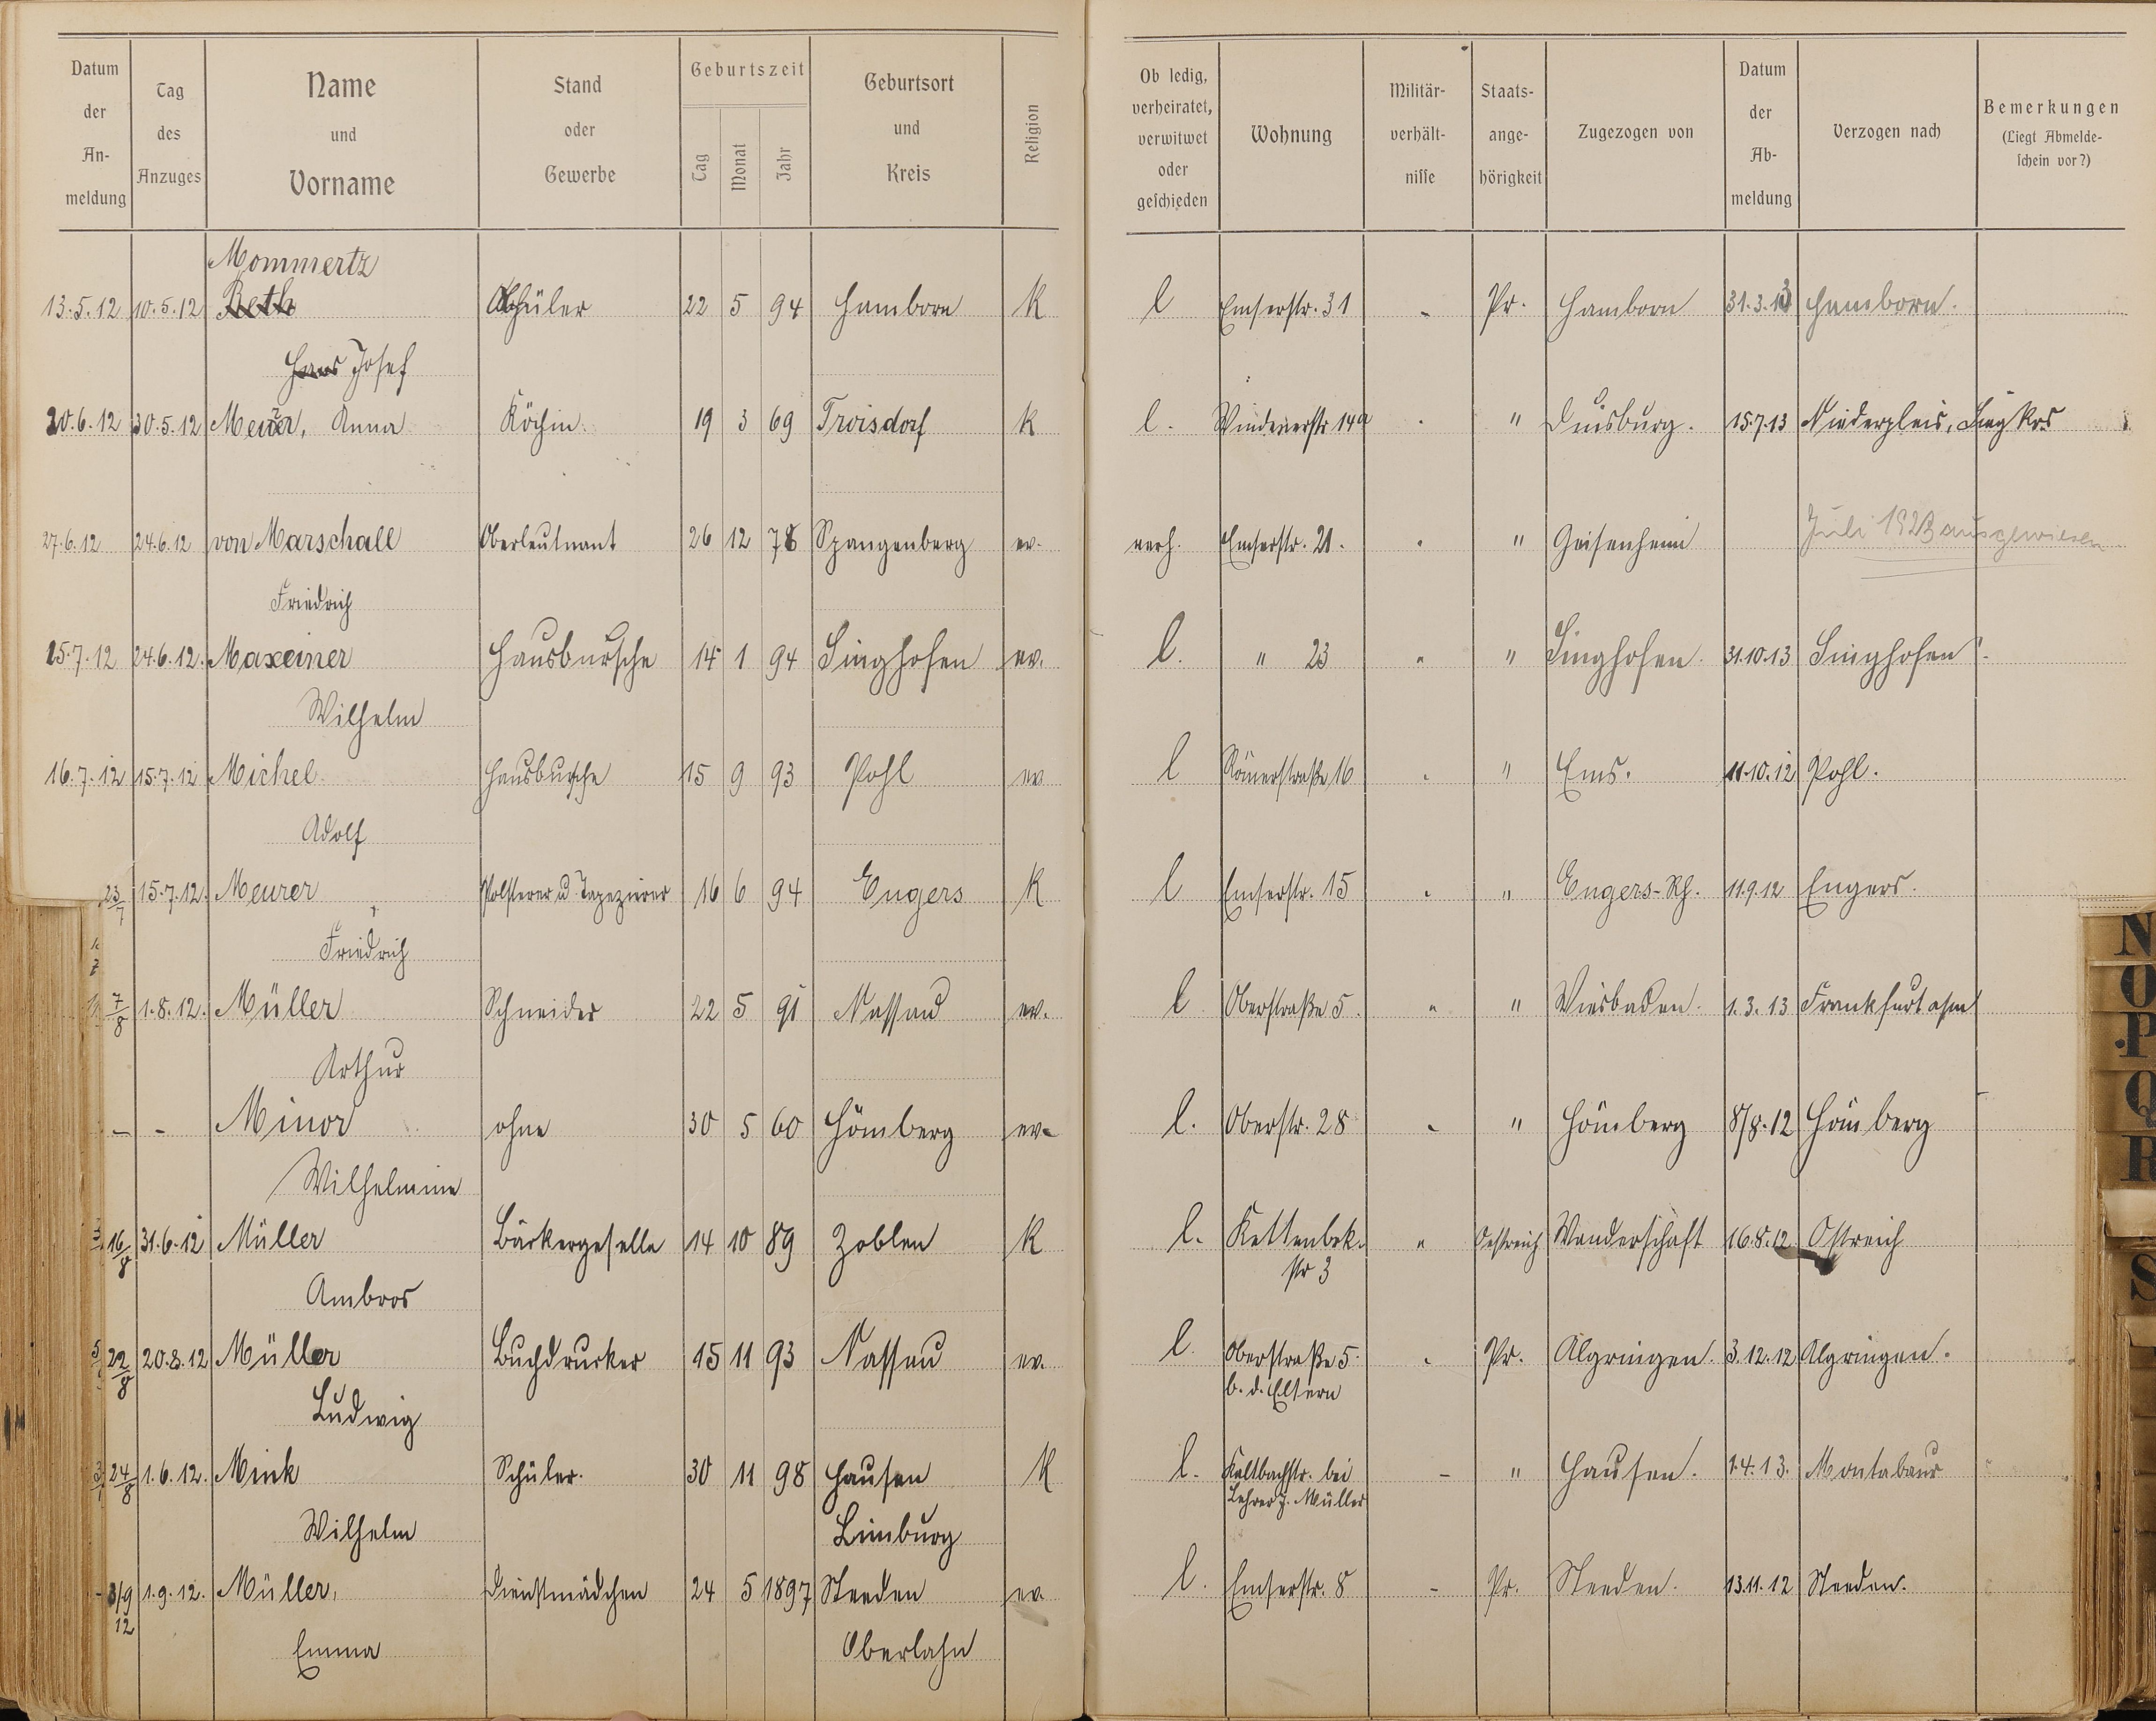 Datum der An-meldung | Tag des Anzuges | Name und Vorname | Stand oder Gewerbe | Geburtszeit Tag Monat Jahr | Geburtsort und Kreis | Religion | Ob ledig, verheiratet, verwitwet oder geschieden | Wohnung | Militär-verhält-nisse | Staats-ange-hörigkeit | Zugezogen von | Datum der Ab-meldung | Verzogen nach | Bemerkungen (Liegt Abmelde-schein vor?)
Mommertz
13.5.12 10.5.12 Beth Schüler 22 5 94 Hamborn K l Emserstr. 31 - Pr. Hamborn 31.3.13 Hamborn.
Hans Josef
20.6.12 30.5.12 Meurer, Anna Köchin. 19 3 69 Troisdorf K l. Windenerstr 14a " Duisburg. 15.7.13 Niederpleis, Sieg Krs
27.6.12 24.6.12 von Marschall Oberleutnant 26 12 78 Spangenberg ev. verh. Emserstr. 21. " " Geisenheim Juli 1923 ausgewiesen
Friedrich
15.7.12 24.6.12. Maxeiner Hausbursche 14 1 94 Singhofen ev. l. " 23 " " Singhofen. 31.10.13 Singhofen
Wilhelm
16.7.12 15.7.12 Michel Hausbursche 15 9 93 Pohl ev l Römerstraße 16 " " Ems. 11.10.12 Pohl.
Adolf
23/7 15.7.12. Meurer Polsterer u. Tapezierer 16 6 94 Engers K l Emserstr. 15 " " Engers-Rh. 11.9.12 Engers.
Friedrich
7/8 1.8.12. Müller Schneider 22 5 91 Nassau ev. l Oberstraße 5. " " Wiesbaden. 1.3.13 Frankfurt a/m
Arthur
- - Minor ohne 30 5 60 Hömberg ev. l. Oberstr. 28 " " Hömberg 8/8.12 Hömberg
Wilhelmine
16/8 31.6.12 Müller Bäckergeselle 14 10 89 Zoblen K l. Kettenbek. " Oestreich Wanderschaft 16.8.12 Ostreich
str 3
Ambros
22/8 20.8.12 Müller Buchdrucker 15 11 93 Nassau ev. l. Oberstraße 5. " Pr. Algringen. 3.12.12 Algringen.
b. d. Eltern
Ludwig
24/8 1.6.12. Mink Schüler. 30 11 98 Hausen K l. Kaltbachstr. bei - " Hausen. 1.4.13. Montabaur
Lehrer J. Müller
Wilhelm Limburg
3/9 12 1.9.12. Müller, Dienstmädchen 24 5 1897 Steeden ev. l. Emserstr. 8 - Pr. Steeden. 13.11.12 Steeden.
Emma Oberlahn
N
O
P
Q
R
S